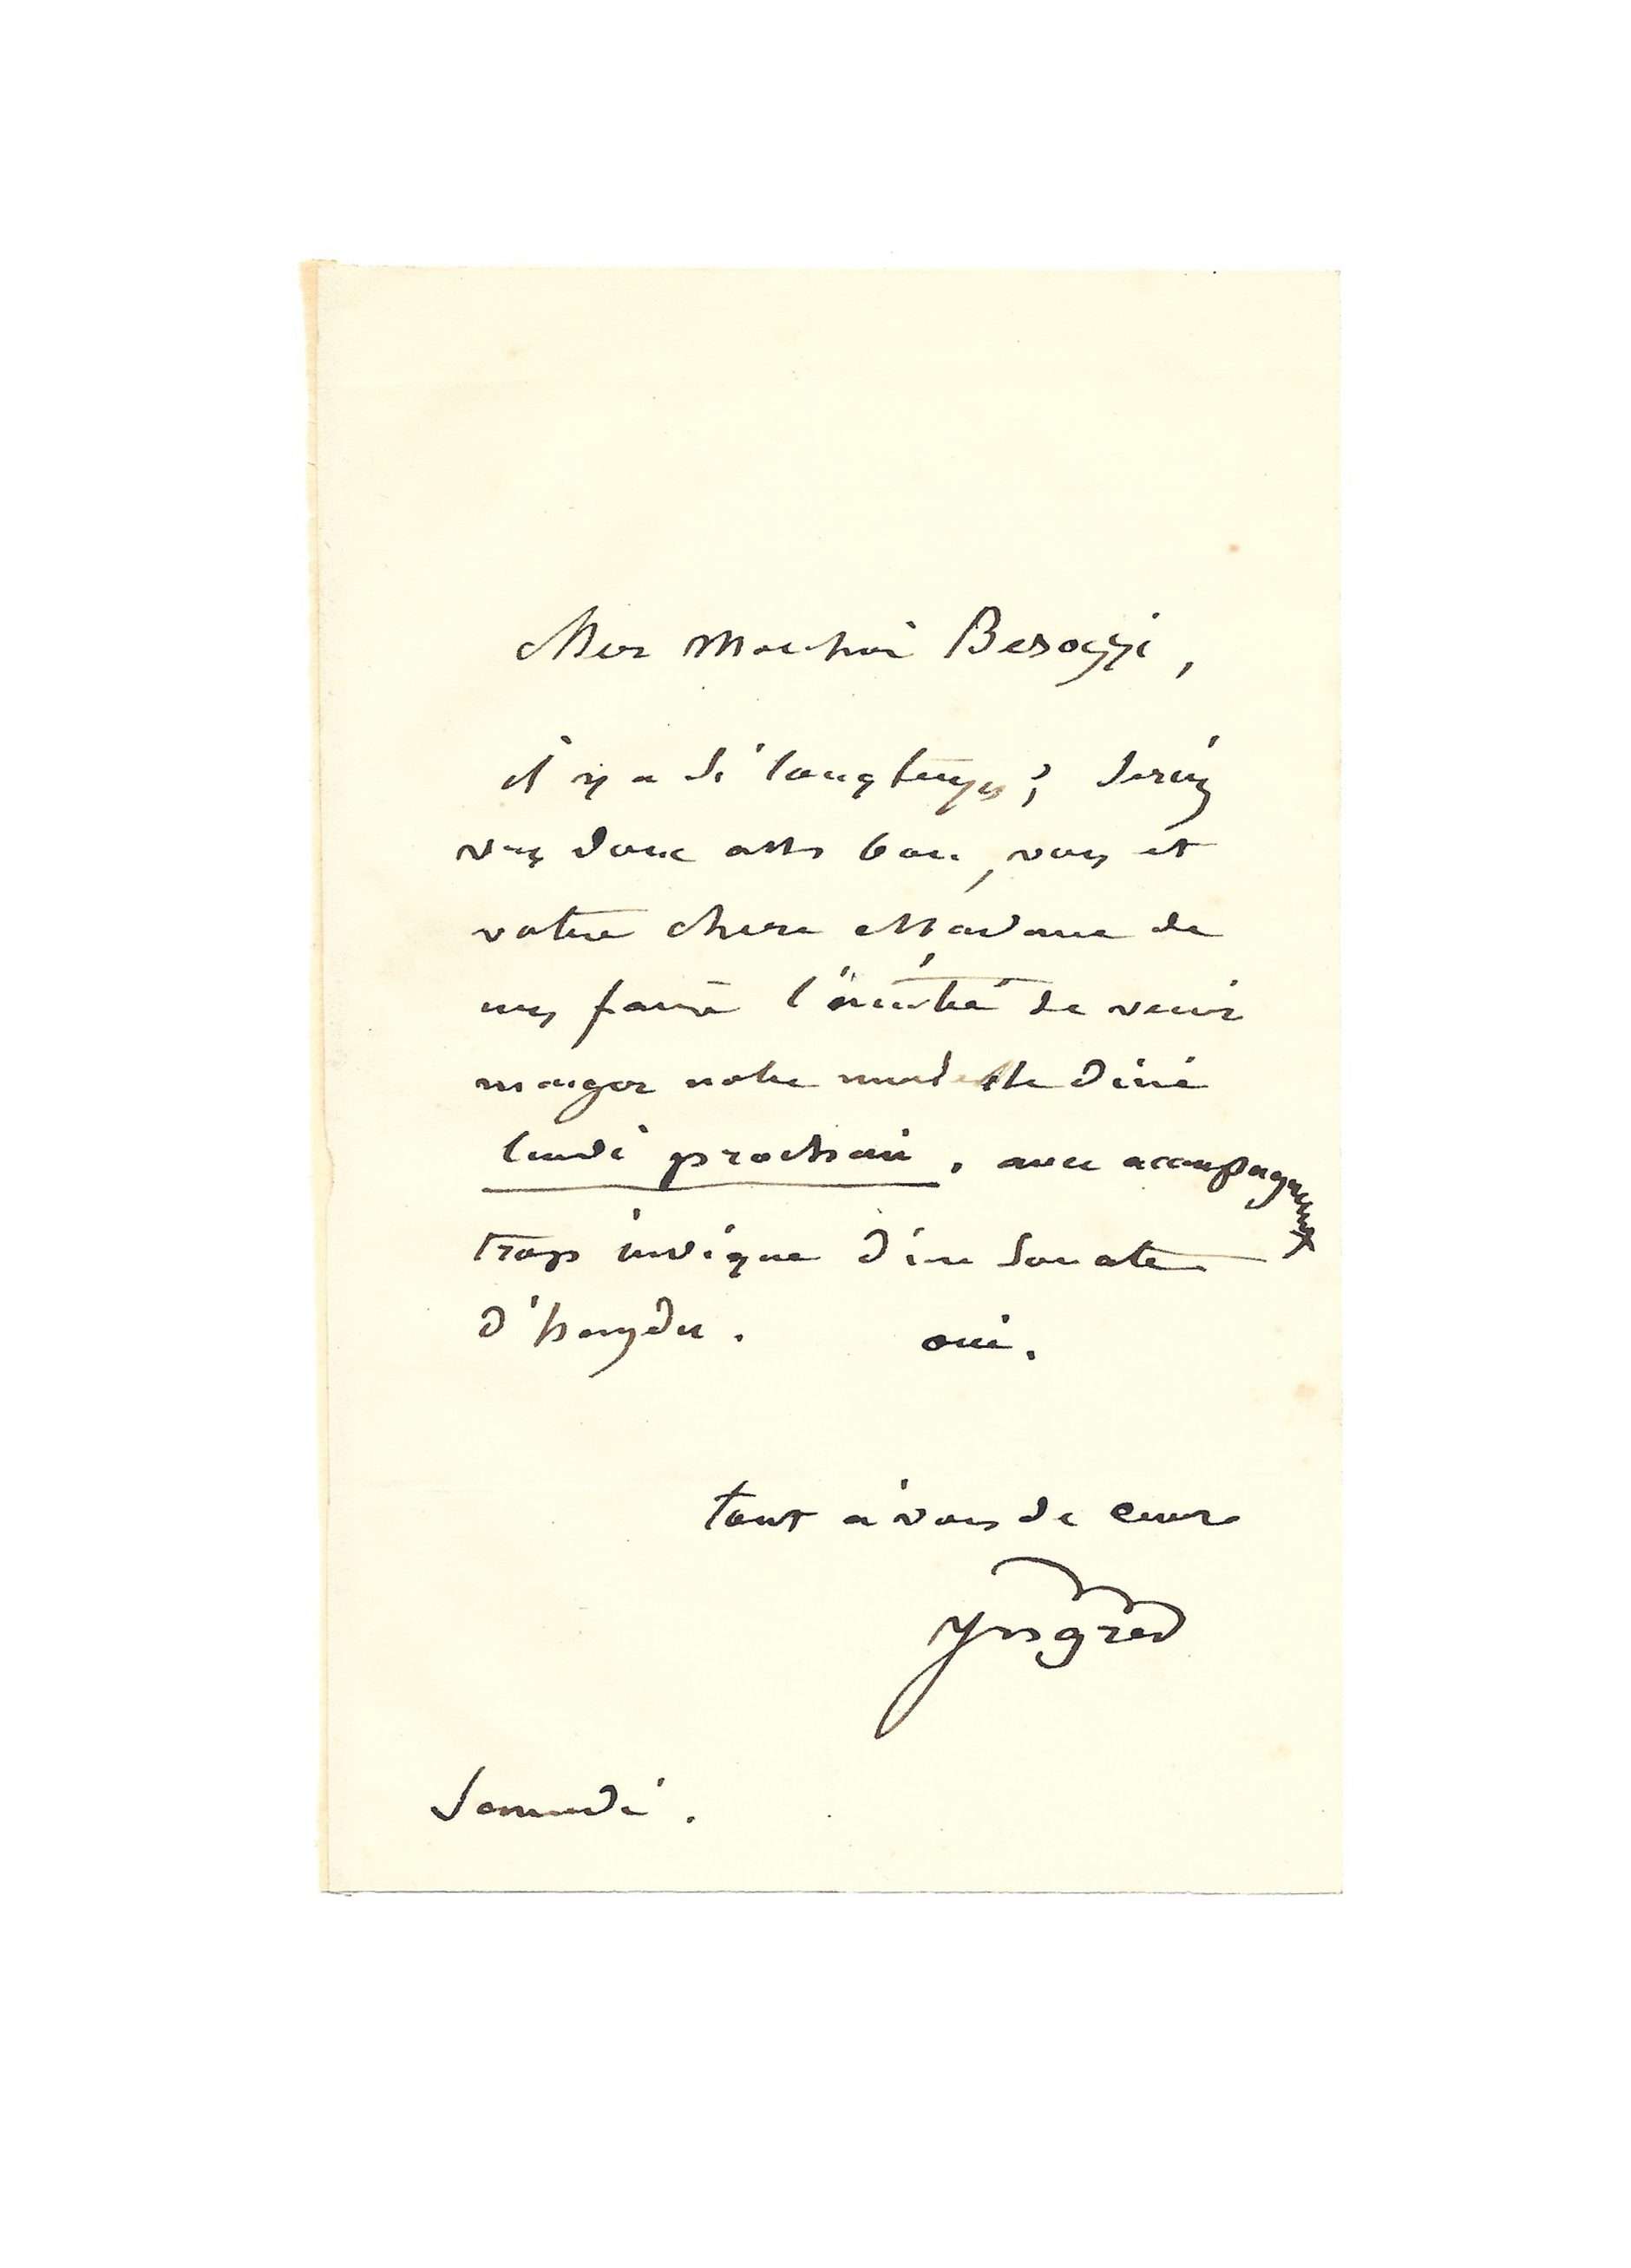 cher Monsieur Besozzi,
il y a si longtemps; seriez
vous donc assez bon, vous et
votre chere Madame de
nous faire l'amitié de venir
manger notre modeste diné
lundi prochain, avec accompagnement
trop indigne d'une Sonate
d'hayden. oui.
tout à vous de cœur
Ingres
Samedi.